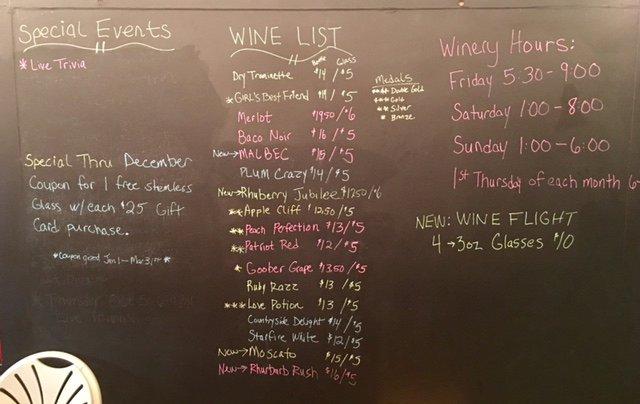 Special Events
* Live Trivia
Special Thru December
Coupon for 1 free stemless
Glass w/each $25 Gift
Card purchase.
*Coupon good Jan 1 – Mar 31st *
WINE LIST
Bottle Glass
Dry Traminette $14 / $5
* GIRL'S Best Friend $14 / $5
Merlot $19.50 / $6
Baco Noir $16 / $5
New→ MALBEC $15 / $5
PLUM Crazy $14 / $5
New→ Rhuberry Jubilee $12.50 / $6
** Apple Cliff $12.50 / $5
** Peach Perfection $13 / $5
** Patriot Red $12 / $5
* Goober Grape $13.50 / $5
Ruby Razz $13 / $5
*** Love Potion $13 / $5
Countryside Delight $14 / $5
Starfire White $12 / $5
New→ Moscato $15 / $5
New→ Rhurbarb Rush $16 / $5
Medals
**** Double Gold
*** Gold
** Silver
* Bronze
Winery Hours:
Friday 5:30-9:00
Saturday 1:00-8:00
Sunday 1:00-6:00
1st Thursday of each month 6-
NEW: WINE FLIGHT
4 → 3oz Glasses $10